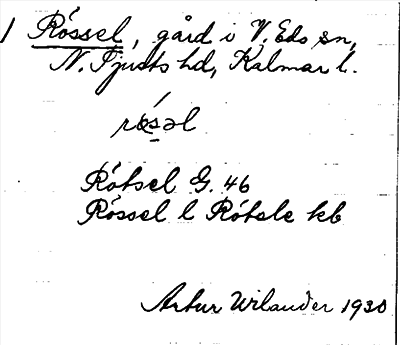 1 Róssel, gård i V. Eds sn,
N. Tjusts hd, Kalmar l.
Rótsel G. 46
Róssel l Rótsle kb
Artur Wilander 1930